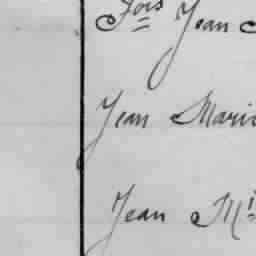 Fois Jean
Jean Marie
Jean Mie